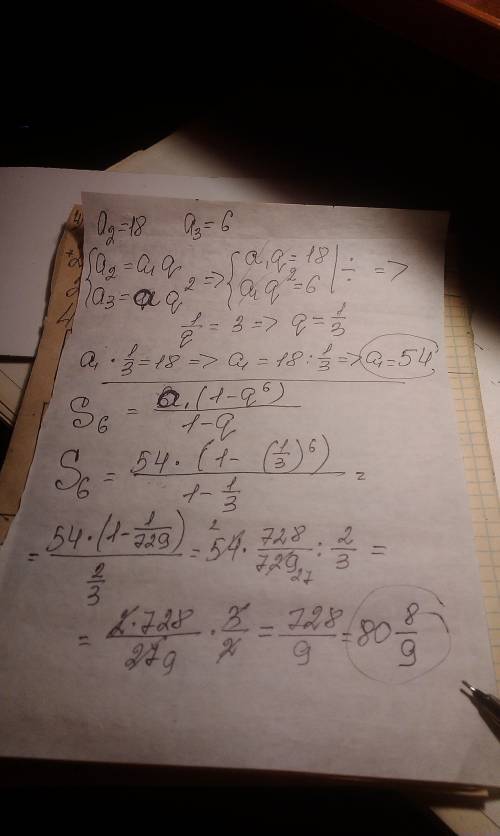 a₂=18 a₃=6
{a₂=a₁q a₃=a₁q² => {a₁q=18 a₁q²=6 | ÷ =>
1/q = 3 => q = 1/3
a₁ · 1/3 = 18 => a₁ = 18 : 1/3 => a₁ = 54
S₆ = a₁(1-q⁶)/1-q
S₆ = 54·(1-(1/3)⁶)/1-1/3 =
= 54·(1-1/729)/2/3 = 54 2 · 728/729 27 : 2/3 =
= 2·728/27 9 · 3/2 = 728/9 = 80 8/9